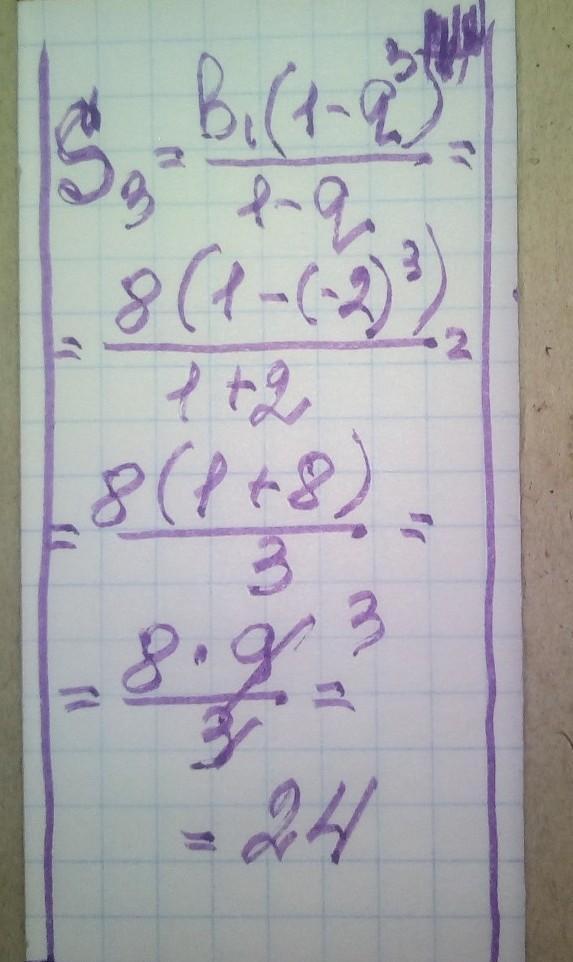 S₃ = B₁(1-q³) / 1-q =
= 8(1-(-2)³) / 1+2 =
= 8(1+8) / 3 =
= 8·9 / 3 = 3
= 24